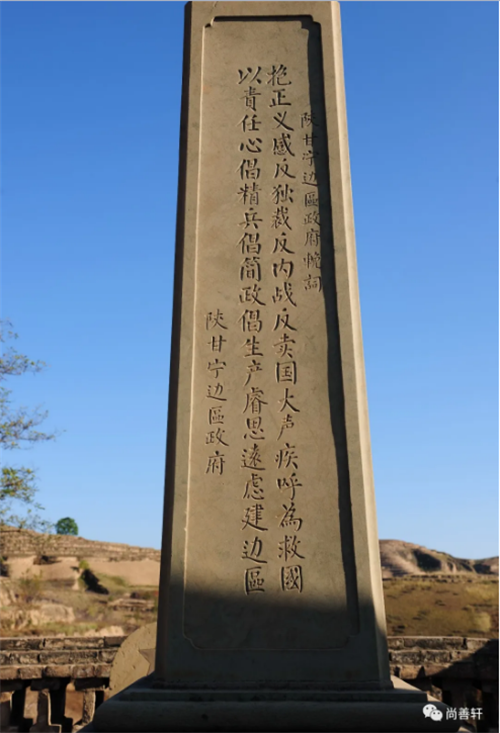 陕甘宁边區政府輓詞
抱正义感反独裁反内战反卖国大声疾呼為救國
以責任心倡精兵倡简政倡生产睿思遠虑建边區
陕甘宁边區政府
尚善轩